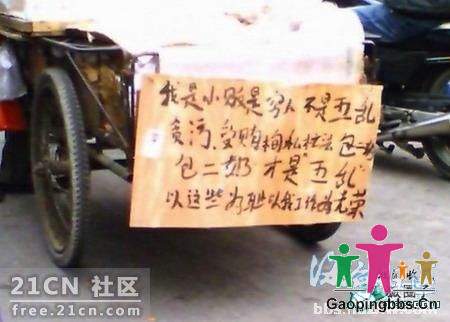 我是小贩是穷人不是五乱
贪污、受贿徇私枉法
包二奶才是"五乱"
以这些为耻以我工作为光荣
21CN 社区
free.21cn.com
Gaopingbbs.Cn